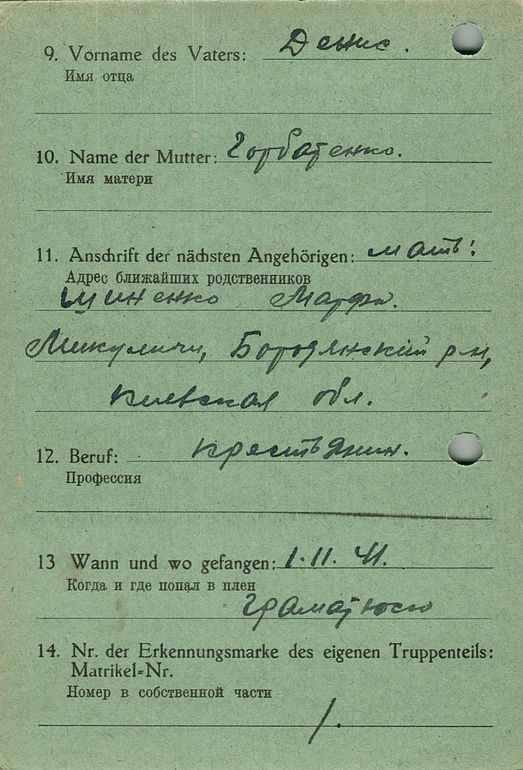 9. Vorname des Vaters: Денис.
Имя отца
10. Name der Mutter: Горбатенко.
Имя матери
11. Anschrift der nächsten Angehörigen: мать:
Адрес ближайших родственников
Шиненко Марфа.
Микуличи, Бородянский р-н,
Киевская обл.
12. Beruf: крестьянин.
Профессия
13 Wann und wo gefangen: 1.11.41.
Когда и где попал в плен
14. Nr. der Erkennungsmarke des eigenen Truppenteils:
Matrikel-Nr.
Номер в собственной части
/.